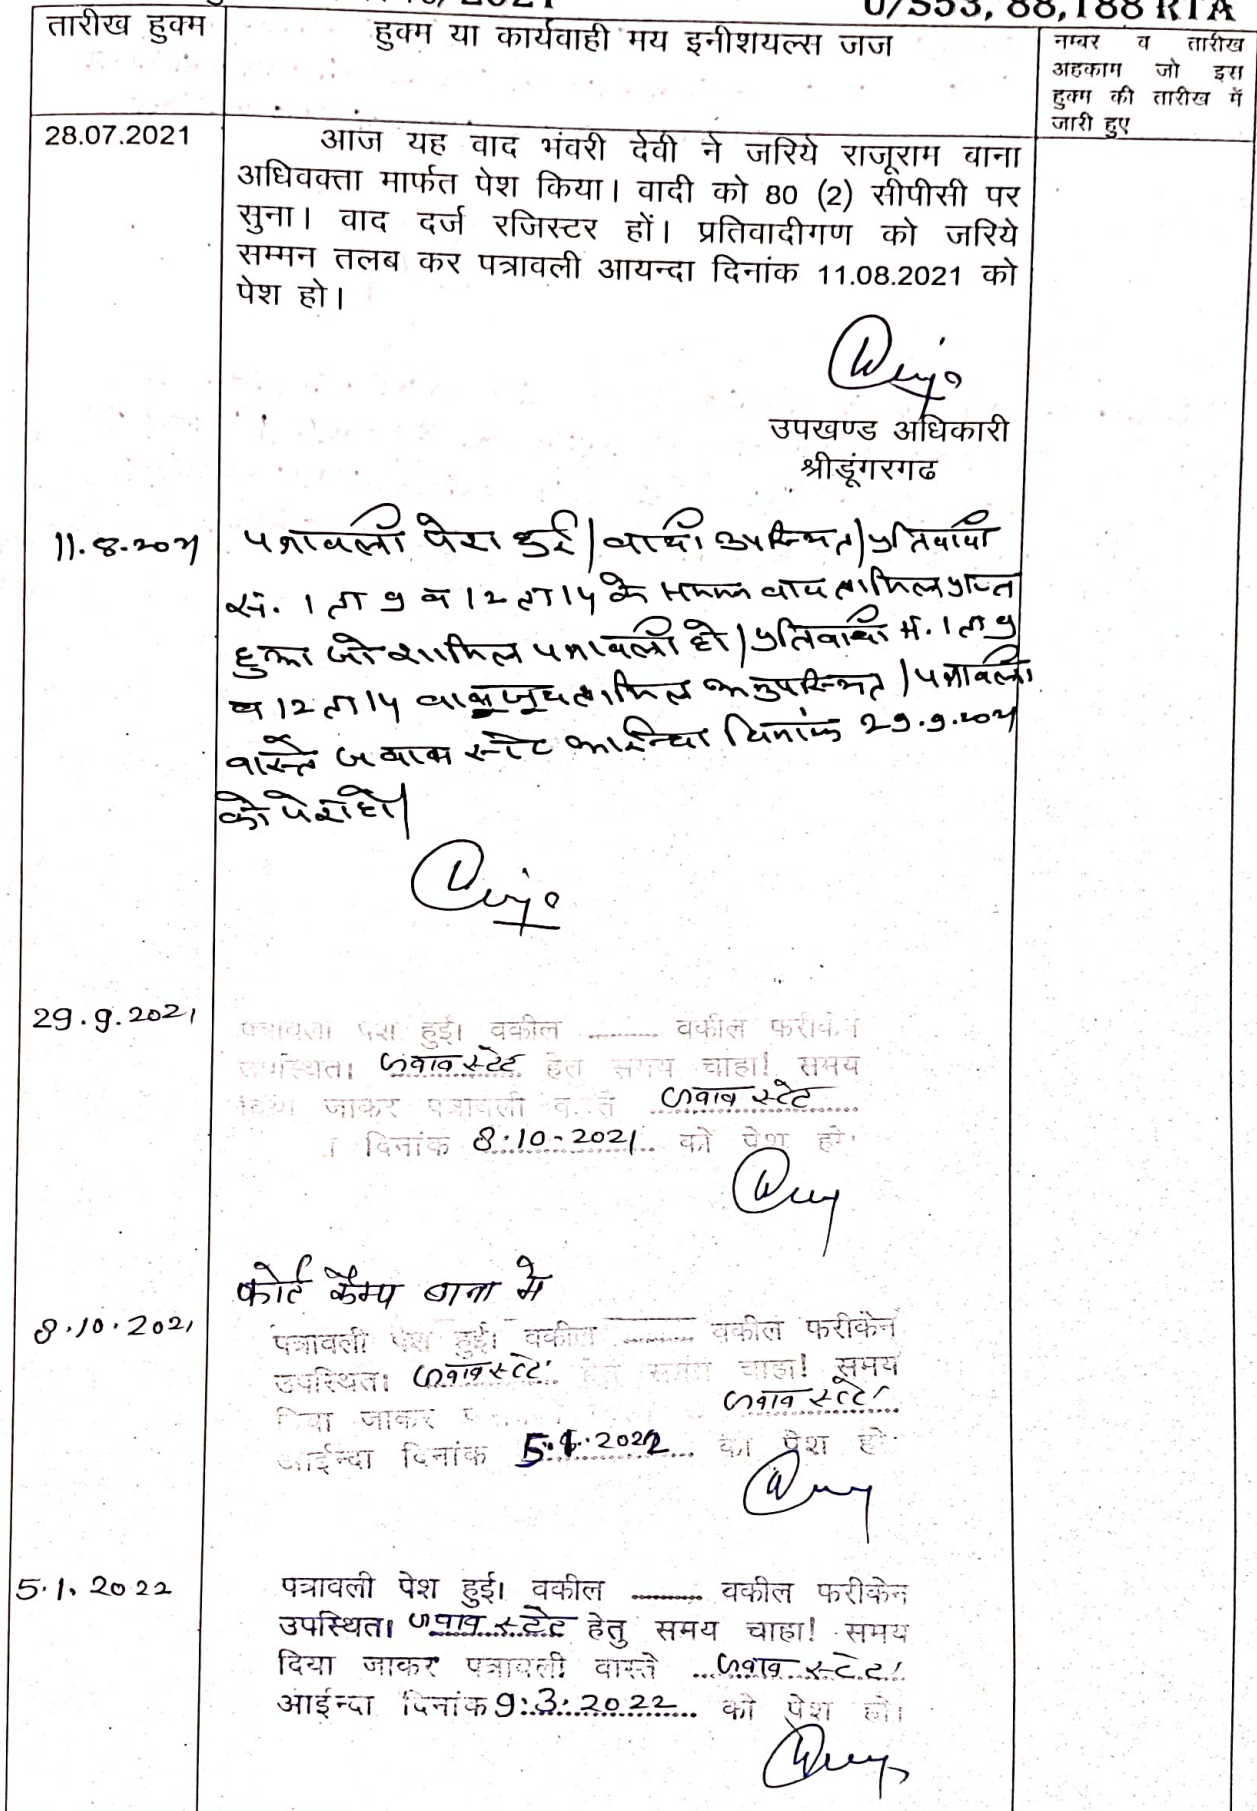 /2021 U/S53, 88,188 RTA
तारीख हुक्म
हुक्म या कार्यवाही मय इनीशयल्स जज
नम्बर व तारीख
अहकाम जो इस
हुक्म की तारीख में
जारी हुए
28.07.2021
आज यह वाद भंवरी देवी ने जरिये राजूराम बाना
अधिवक्ता मार्फत पेश किया। वादी को 80 (2) सीपीसी पर
सुना। वाद दर्ज रजिस्टर हों। प्रतिवादीगण को जरिये
सम्मन तलब कर पत्रावली आयन्दा दिनांक 11.08.2021 को
पेश हो।
उपखण्ड अधिकारी
श्रीडूंगरगढ
11.8.2021
पत्रावली पेश हुई। वादी उपस्थित। प्रतिवादी
सं. 1 ता 9 व 12 ता 14 के सम्मन बाद तामिल प्राप्त
हुआ जो शामिल पत्रावली हो। प्रतिवादी सं. 1 ता 9
व 12 ता 14 बावजूद तामिल अनुपस्थित। पत्रावली
वास्ते जवाब स्टेट आईन्दा दिनांक 29.9.2021
को पेश हो।
29.9.2021
पत्रावली पेश हुई। वकील ......... वकील फरीकेन
उपस्थित। जवाब स्टेट हेतु समय चाहा! समय
दिया जाकर पत्रावली वास्ते जवाब स्टेट
दिनांक 8.10.2021 को पेश हो
कोर्ट कैम्प बाना मे
8.10.2021
पत्रावली पेश हुई। वकील ......... वकील फरीकेन
उपस्थित। जवाब स्टेट हेतु समय चाहा! समय
दिया जाकर जवाब स्टेट
आईन्दा दिनांक 5.1.2022 को पेश हो
5.1.2022
पत्रावली पेश हुई। वकील ......... वकील फरीकेन
उपस्थित। जवाब स्टेट हेतु समय चाहा! समय
दिया जाकर पत्रावली वास्ते जवाब स्टेट
आईन्दा दिनांक 9.3.2022 को पेश हो।